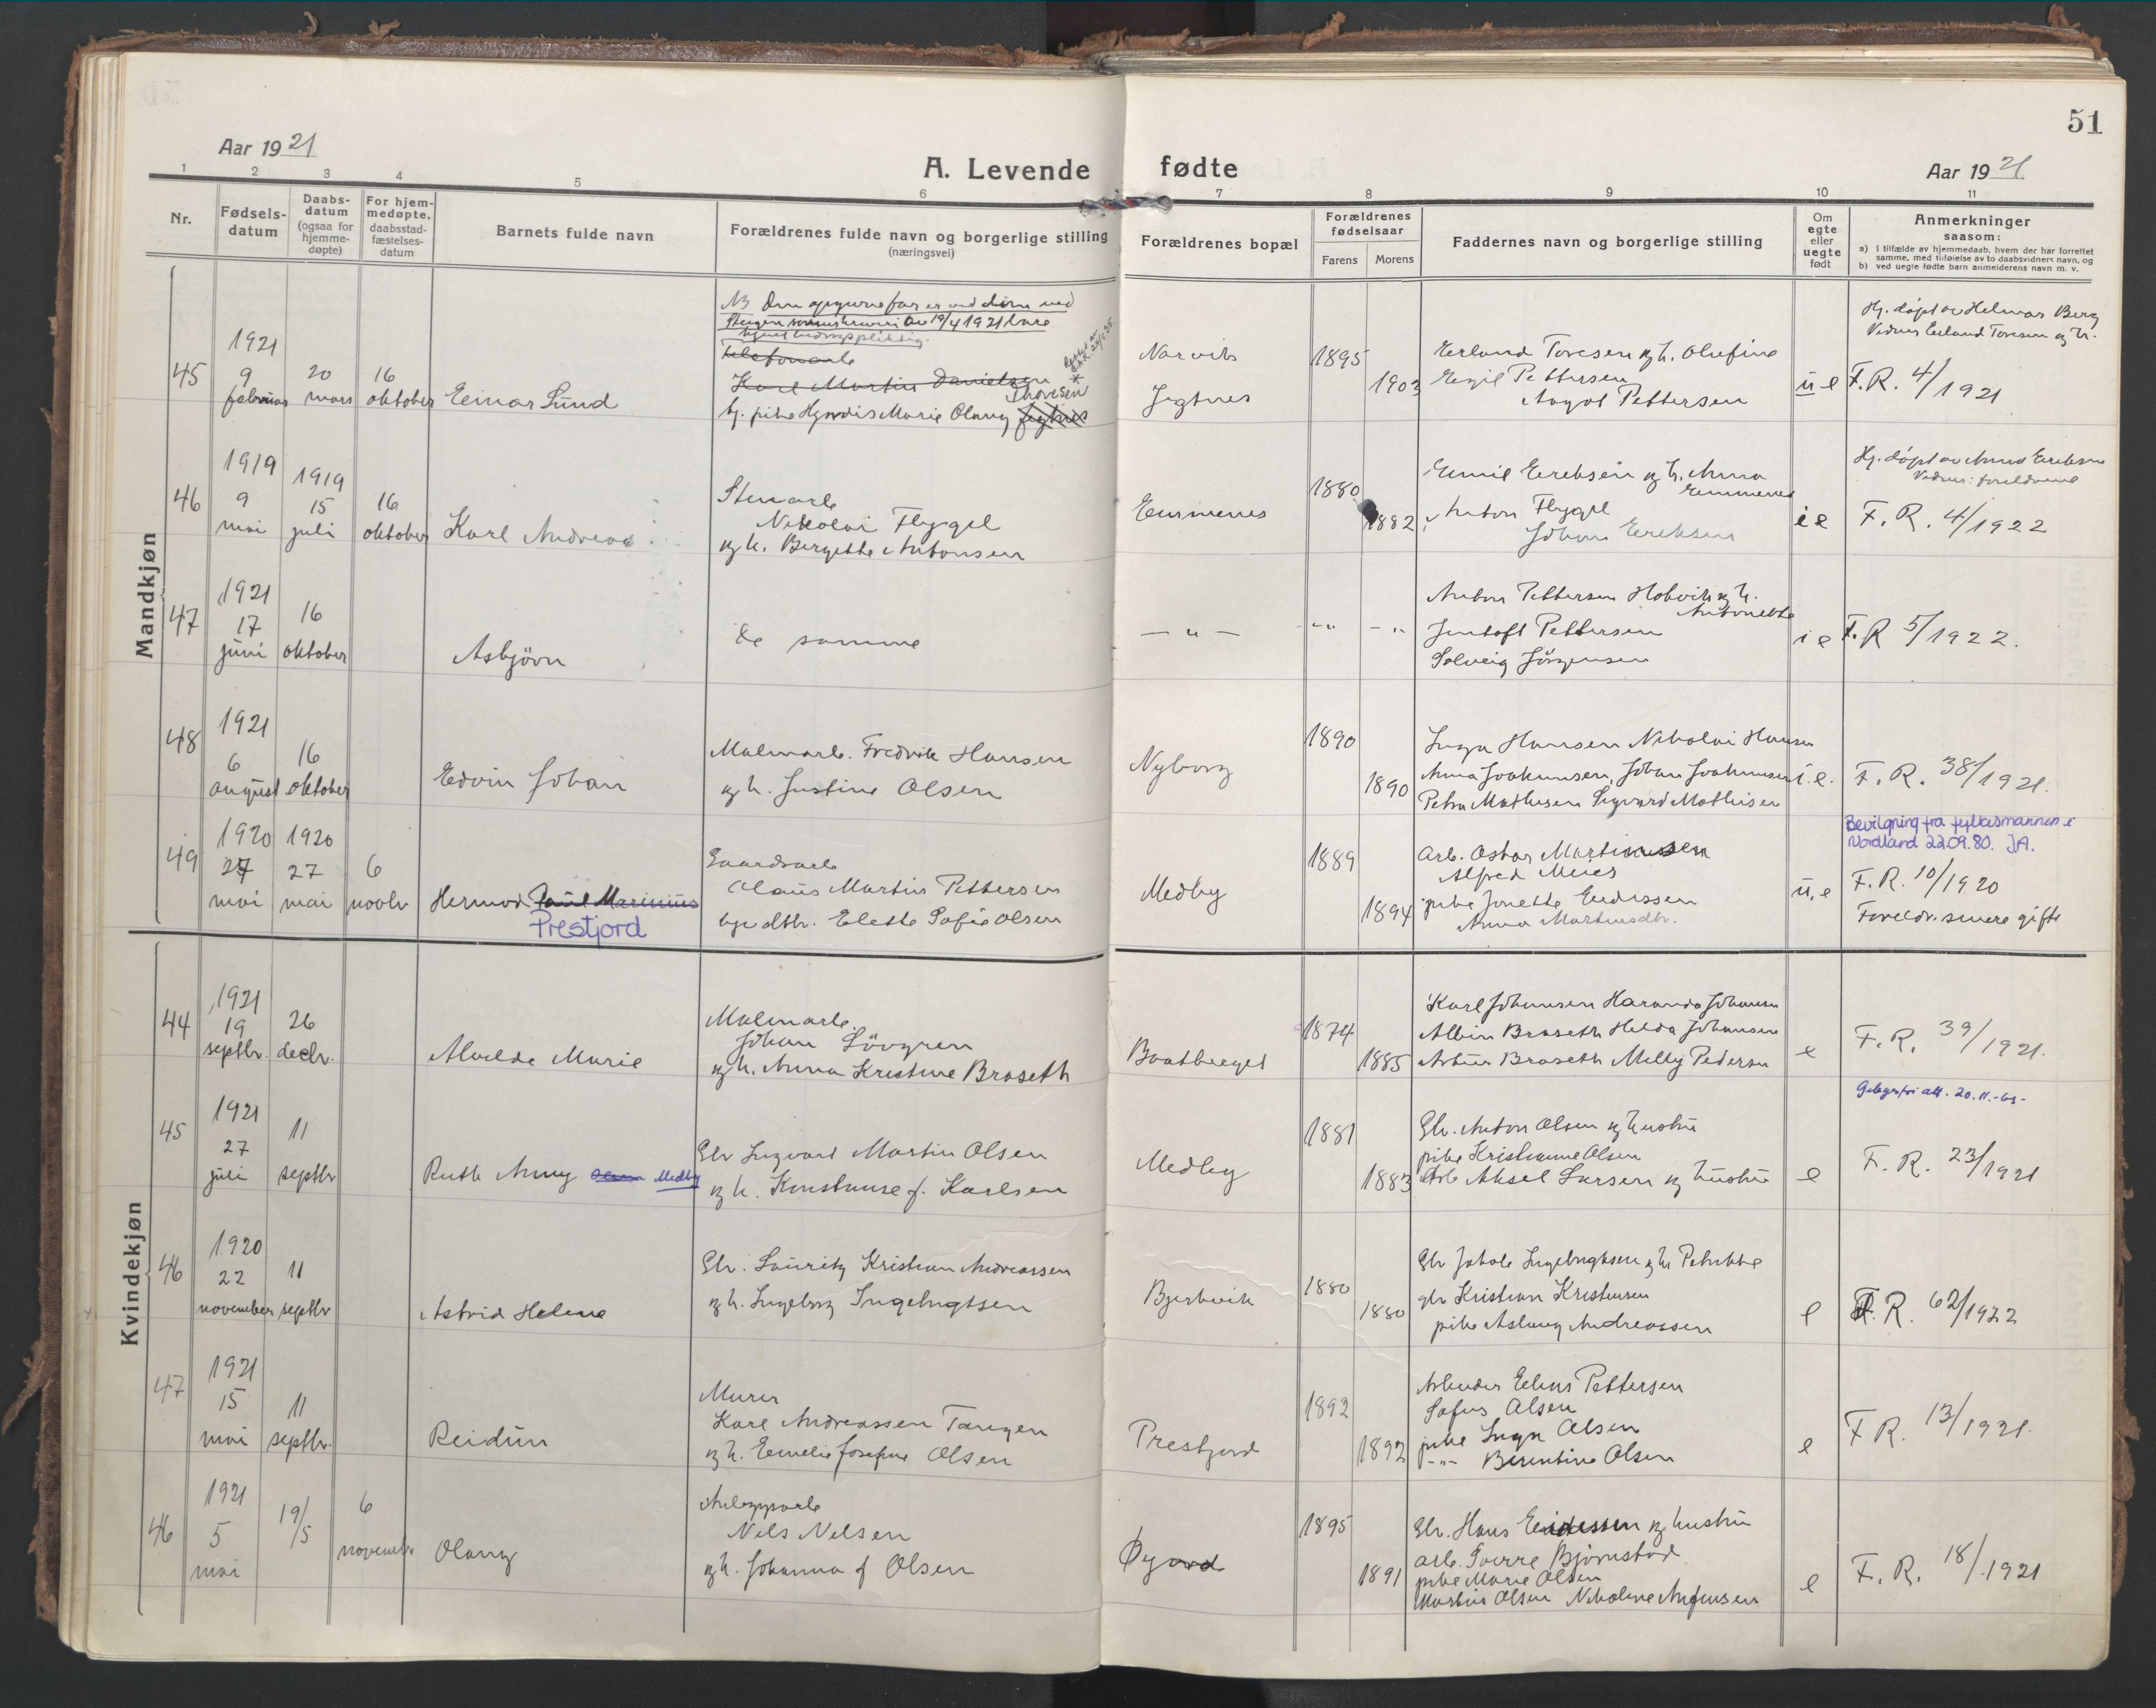 51
Aar 1921
A. Levende fødte
Aar 1921
1 2 3 4 5 6 7 8 9 10 11
Nr.
Fødsels-
datum
Daabs-
datum
(ogsaa for
hjemme-
døpte)
For hjem-
medøpte,
daabsstad-
fæstelses-
datum
Barnets fulde navn
Forældrenes fulde navn og borgerlige stilling
(næringsvei)
Forældrenes bopæl
Forældrenes
fødselsaar
Farens Morens
Faddernes navn og borgerlige stilling
Om
egte
eller
uegte
født
Anmerkninger
saasom:
a) I tilfælde av hjemmedaab, hvem der har forrettet
samme, med tilføielse av to daabsvidners navn, og
b) ved uegte fødte barn anmelderens navn m. v.
Mandkjøn
45
1921
9
februar
20
mars
16
oktober
Einar Lund
Karl Martin Danielsen
Thoresen
tj. pike Hjørdis Marie Olaug
Narvik
1895
1903
Erland Toresen og h. Olufine
Pettersen
Aagot Pettersen
u e
Hj. døpt av Helmar Berg
F.R. 4/1921
46
1919
9
mai
1919
15
juli
16
oktober
Karl Andreas
Stenarb
Nikolai Flygel
og h. Bergitte Antonsen
Emmenes
1880
1882
Emil Eriksen og h. Anna
Emmenes
Anton Flygel
Johan Eriksen
i e
Hj. døpt av Anna Eriksen
Vidner: foreldrene
F. R. 4/1922
47
1921
17
juni
16
oktober
Asbjørn
de samme
— " —
- " -
- "
Anton Pettersen Hokvik og h.
Antonette
Jentoft Pettersen
Solveig Jörgensen
i e
F. R 5/1922.
48
1921
6
august
16
oktober
Edvin Johan
Malmarb. Fredrik Hansen
og h. Justine Olsen
Nyborg
1890
1890
Inga Hansen Nikolai Hansen
Anna Joakimsen, Johan Joakimsen
Petra Mathisen Sigvard Mathisen
i. e.
F. R. 38/1921.
49
1920
27
mai
1920
27
mai
6
novbr
Hermod Paul Marinius
Prestjord
Gaardarb
Claus Martin Pettersen
Elette Sofie Olsen
Medby
1889
1894
Arb. Oskar Martinussen
Alfred Meier
pike Jonette Endressen
Anna Martinsdtr.
u. e
Bevilgning fra fylkesmannen i
Nordland 22.09.80. JA.
F. R. 10/1920
Foreldr. senere gifte
Kvindekjøn
44
1921
19
septbr.
26
decbr.
Alvilde Marie
Malmarb.
Johan Lövgren
og h. Anna Kristine Braseth
Boatberget
1874
1885
Karl Johansen Haranda Johansen
Albin Braseth Hilda Johansen
Artur Braseth Milly Pedersen
e
F. R. 39/1921.
45
1921
27
juli
11
septbr
Ruth Anny Olsen Medby
Gbr Ingvart Martin Olsen
og h. Konstanse f. Karlsen
Medby
1881
1883
Gbr. Anton Olsen og hustru
pike Kristianne Olsen
Arb Aksel Larsen og hustru
e
F. R. 23/1921
46
1920
22
november
11
septbr
Astrid Helene
Gbr. Lauritz Kristian Andreassen
og h. Ingeborg Ingebrigtsen
Bjerkvik
1880
1880
Gbr Jakob Ingebrigtsen og h Petrikke
gbr Kristian Kristensen
pike Aslaug Andreassen
e
F. R. 62/1922
47
1921
15
mai
11
septbr.
Reidun
Murer
Karl Andreassen Tangen
og h. Emelie Josefine Olsen
Prestjord
1892
1892
Arbeider Edens Pettersen
Sofus Olsen
pike Inga Olsen
-"- Berentine Olsen
e
F R. 13/1921.
46
1921
5
mai
19/5
6
novembr
Olaug
Anlægsarb
Nils Nilsen
og h. Johanna f Olsen
Øyord
1895
1891
Gbr. Hans Eidessen og hustru
arb. Sverre Bjørnstad
pike Marie Olsen
Martin Olsen Nikoline Anfinsen
e
F. R. 18/1921